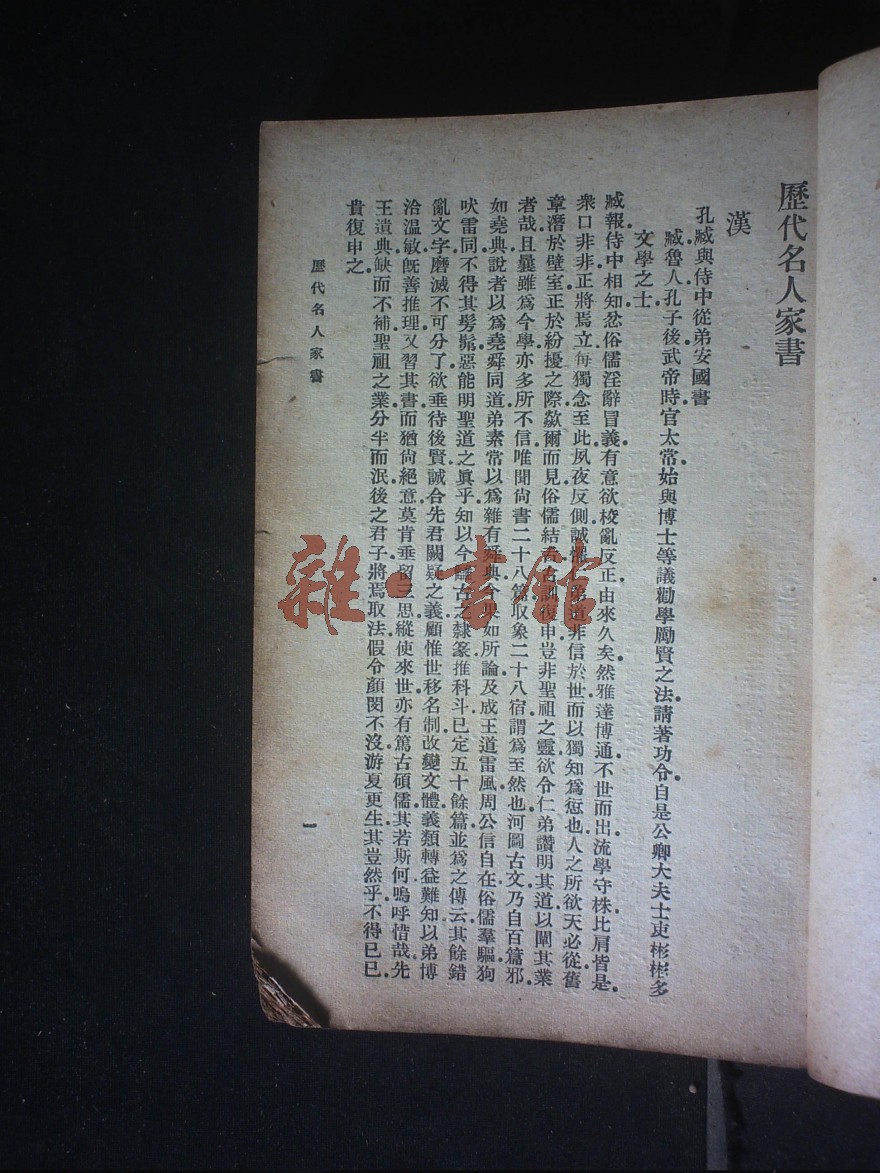 歷代名人家書
漢
孔臧與侍中從弟安國書
臧魯人孔子後武帝時官太常始與博士等議勸學勵賢之法請著功令自是公卿大夫士吏彬彬多
文學之士
臧報侍中相知忿俗儒淫辭冒義有意欲校亂反正由來久矣然雅達博通不世而出流學守株比肩皆是
衆口非非正將焉立每獨念至此夙夜反側誠懼 弟道非信於世而以獨知爲愆也人之所欲天必從舊
章潛於壁室正於紛擾之際歘爾而見俗儒結舌古訓復申豈非聖祖之靈欲令仁弟讚明其道以闡其業
者哉且曩雖爲今學亦多所不信唯聞尚書二十八篇取象二十八宿謂爲至然也河圖古文乃自百篇邪
如堯典說者以爲堯舜同道弟素常以爲雜有舜典今果如所論及成王道雷風周公信自在俗儒羣驅狗
吠雷同不得其髣髴惡能明聖道之眞乎知以今讎古之隸篆推科斗已定五十餘篇並爲之傳云其餘錯
亂文字磨滅不可分了欲垂待後賢誠合先君闕疑之義顧惟世移名制改變文體義類轉益難知以弟博
洽溫敏旣善推理又習其書而猶尙絕意莫肯垂留三思縱使來世亦有篤古碩儒其若斯何嗚呼惜哉先
王遺典缺而不補聖祖之業分半而泯後之君子將焉取法假令顏閔不沒游夏更生其豈然乎不得已已
貴復申之
歷代名人家書
一
雜·書館